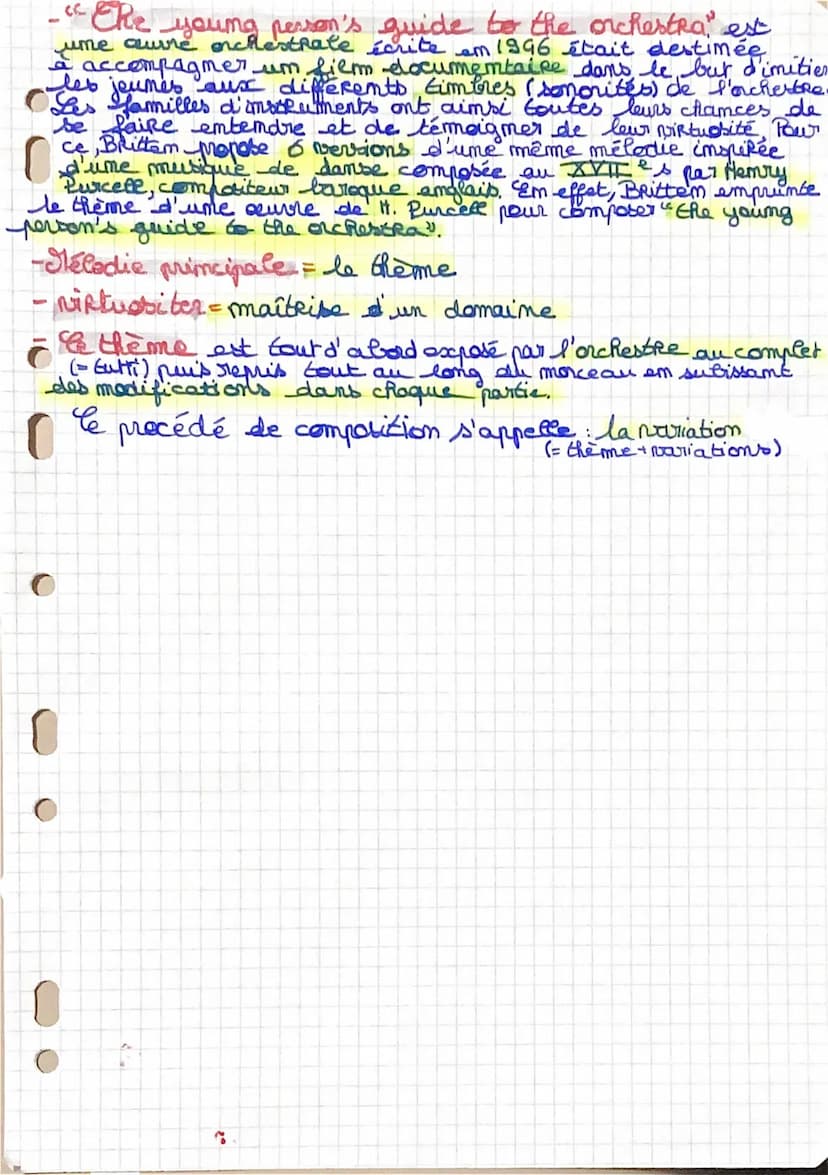 - "The young person's guide to the orchestra" est
une œuvre orchestrale écrite en 1996 était destinée
à accompagner un film documentaire dans le but d'initier
les jeunes aux différents timbres (sonorités) de l'orchestre.
Les familles d'instruments ont ainsi toutes leurs chances de
se faire entendre et de témoigner de leur virtuosité, Pour
ce, Britten propose 6 versions d'une même mélodie inspirée
d'une musique de danse composée au XVII e s par Henry
Purcell, compositeur baroque anglais. En effet, Britten emprunte
le thème d'une œuvre de H. Purcell pour composer "the young
person's guide to the orchestra".
- Mélodie principale = le thème
- virtuositer = maîtrise d'un domaine
- Ce thème est tout d'abord exposé par l'orchestre au complet
(= tutti) puis repris tout au long du morceau en subissant
des modifications dans chaque partie.
Ce procédé de composition s'appelle : la variation
(= thème + variations)